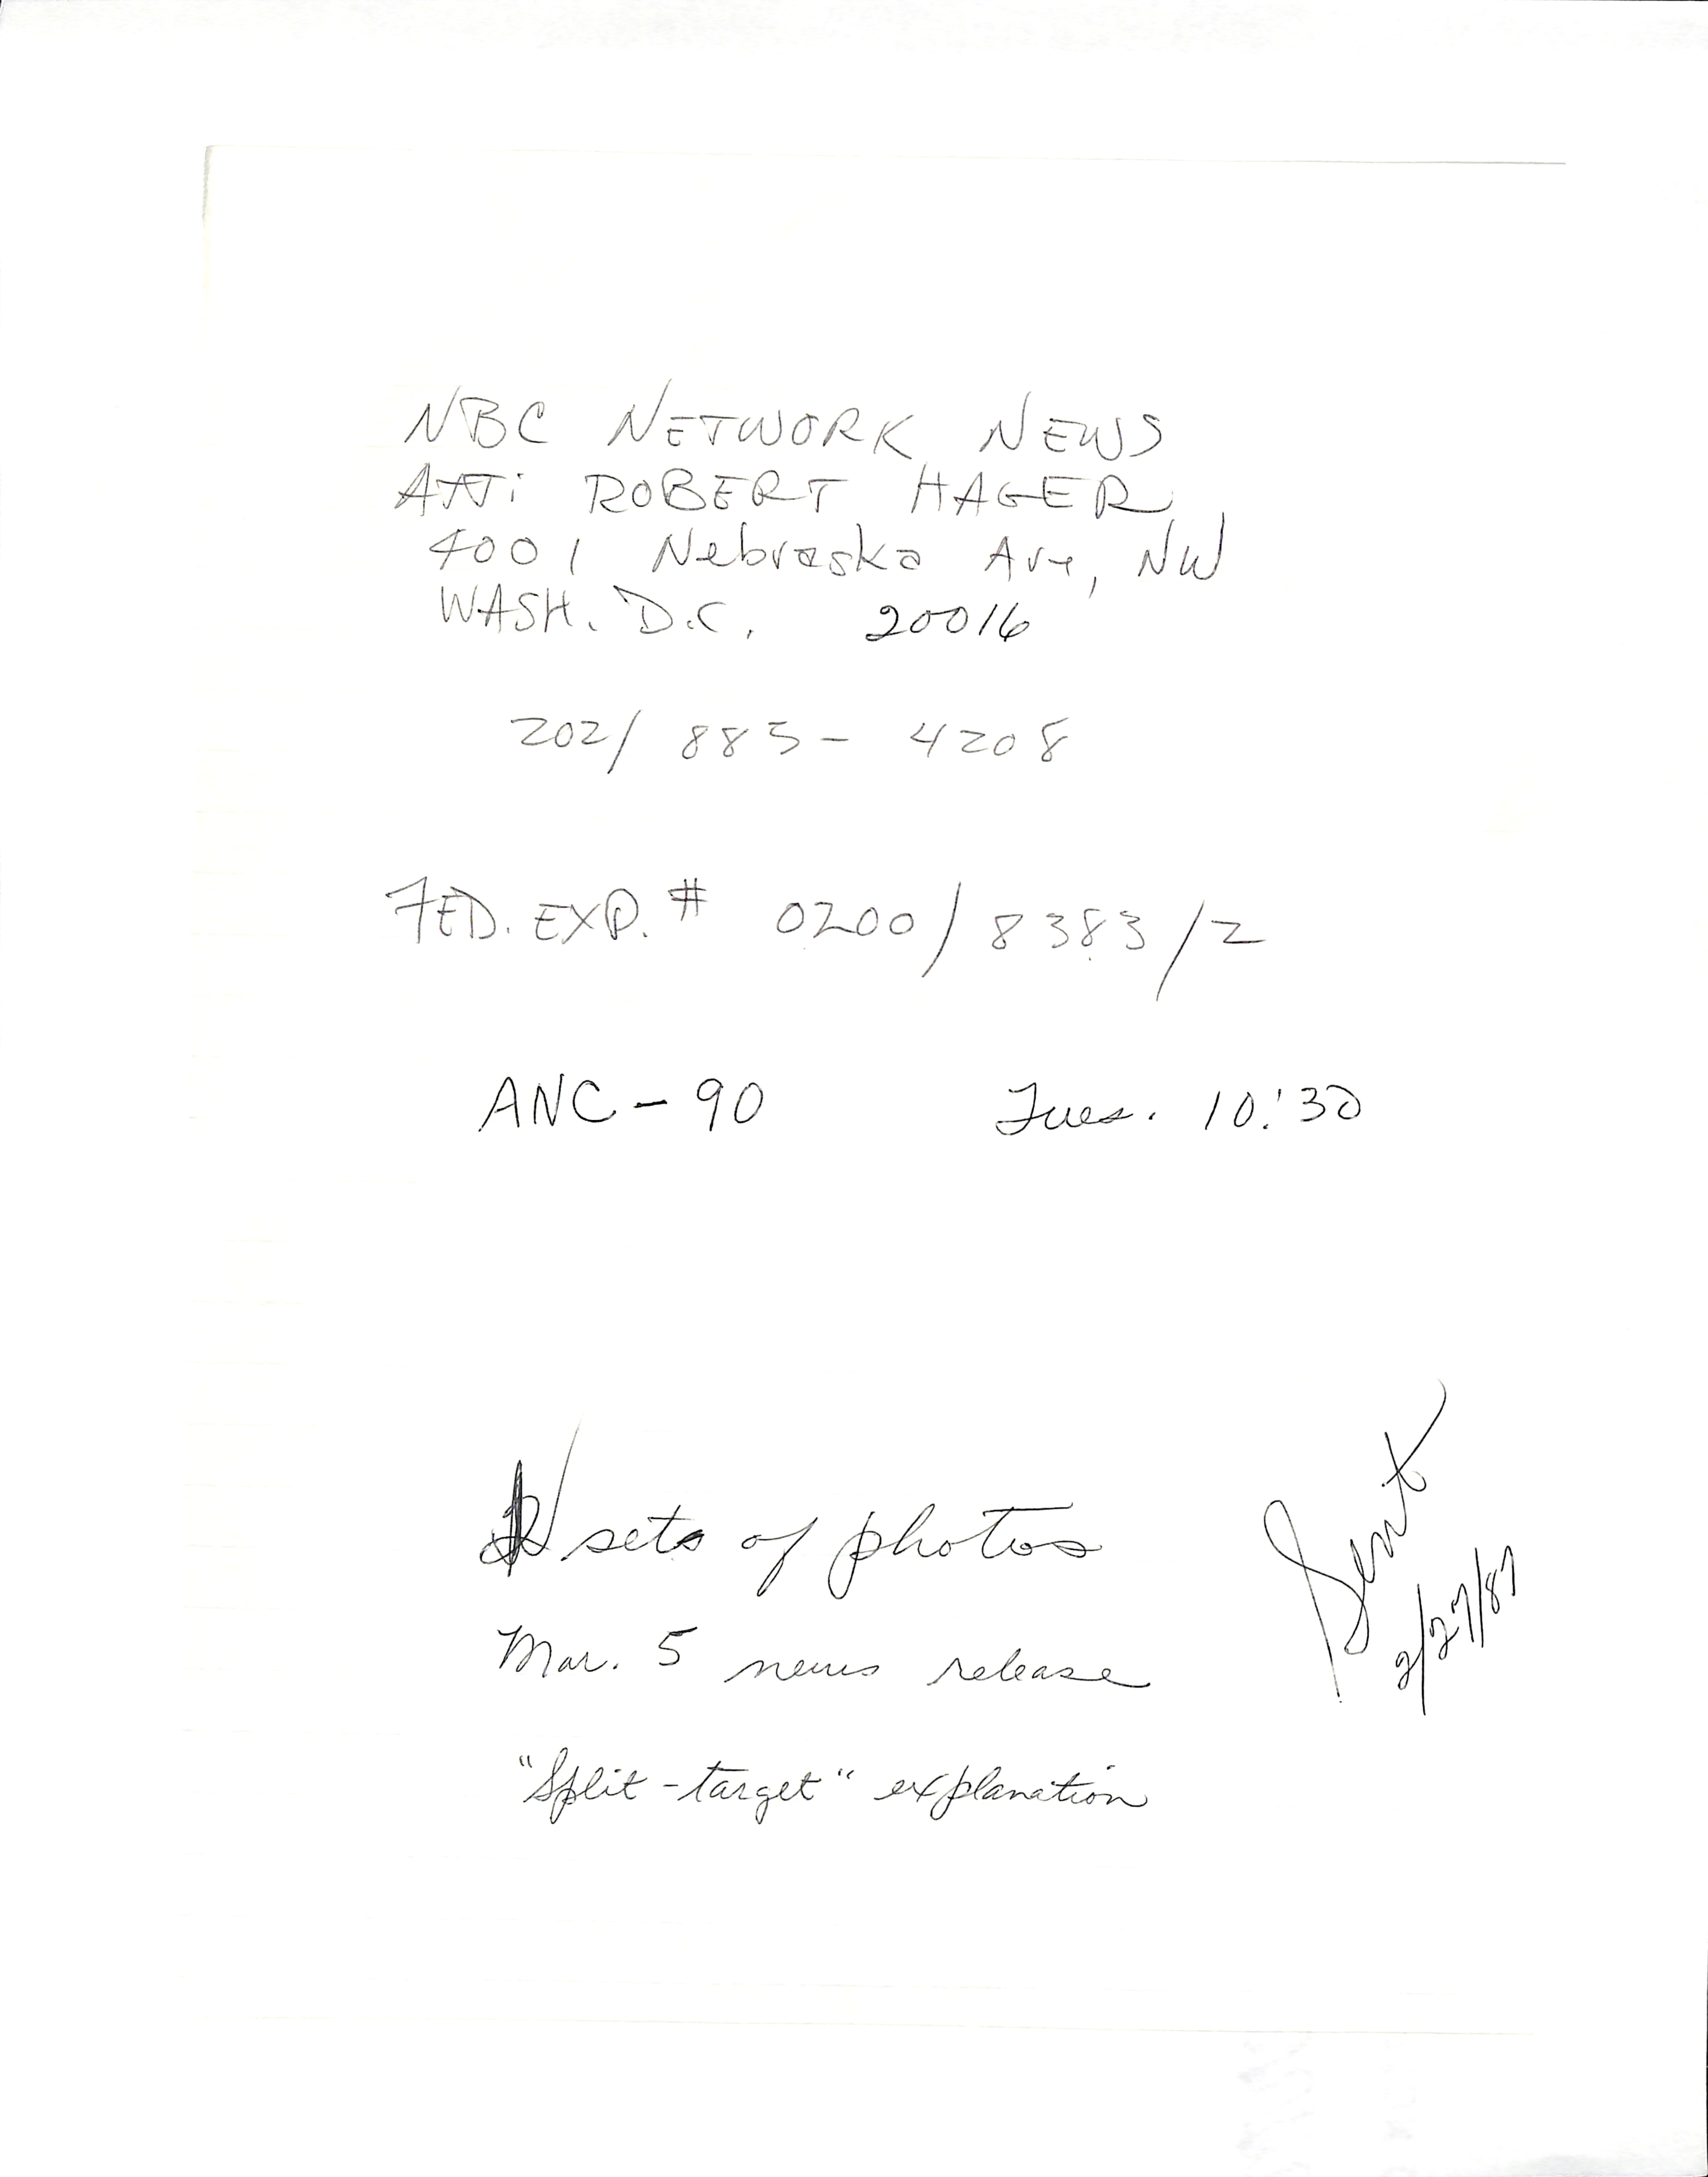 NBC NETWORK NEWS
ATT: ROBERT HAGER
4001 Nebraska Ave, NW
WASH. D.C. 20016
202/ 885-4208
FED. EXP. # 0200/8383/2
ANC-90 Tues. 10:30
sets of photos
Mar. 5 news release
"Split-target" explanation
Sent
2/27/87